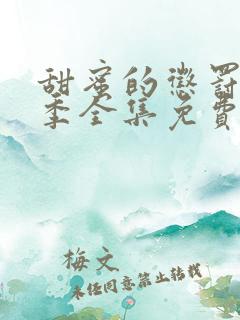 甜蜜的惩罚
季全集免费
梅文
未经同意禁止转载